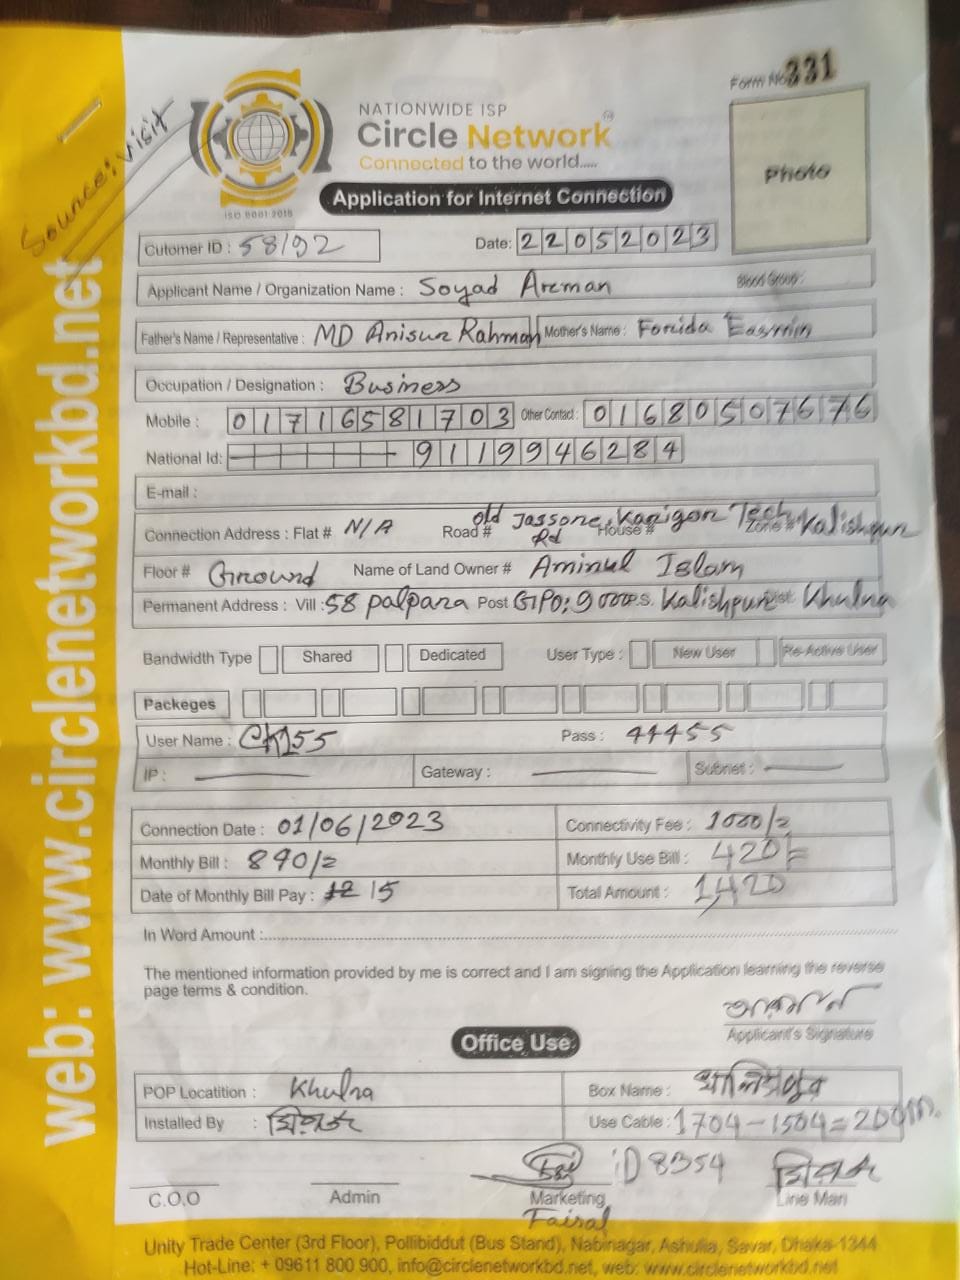 Form No 331
Source: visit
NATIONWIDE ISP
Circle Network
Connected to the world.....
ISO 9001:2015
Photo
Application for Internet Connection
Cutomer ID : 58192 Date: 22052023
Applicant Name / Organization Name : Soyad Arman Blood Group:
Father's Name / Representative : MD Anisur Rahman Mother's Name : Forida Easmin
Occupation / Designation : Business
Mobile : 01716581703 Other Contact : 01680507676
National Id: 9119946284
E-mail :
Connection Address : Flat # N/A Road # Old Jassore Rd House # Karigon Tech Zone # Kalishpur
Floor # Ground Name of Land Owner # Aminul Islam
Permanent Address : Vill : 58 palpara Post GPO: 9000 P.S. Kalishpur Dist: Khulna
Bandwidth Type Shared Dedicated User Type : New User Re-Active User
Packeges
User Name : CK155 Pass : 44455
IP : Gateway : Subnet :
Connection Date : 01/06/2023 Connectivity Fee : 1000/=
Monthly Bill : 890/= Monthly Use Bill : 420/=
Date of Monthly Bill Pay : 15 Total Amount : 1,420
In Word Amount :
The mentioned information provided by me is correct and I am signing the Application learning the reverse
page terms & condition.
আরমান
Applicant's Signature
Office Use
POP Locatition : Khulna Box Name : খালিশপুর
Installed By : Use Cable : 1704-1504=200m.
ID 8354
C.O.O Admin Marketing Line Man
Faisal
Unity Trade Center (3rd Floor), Pollibiddut (Bus Stand), Nabinagar, Ashulia, Savar, Dhaka-1344
Hot-Line: + 09611 800 900, info@circlenetworkbd.net, web: www.circlenetworkbd.net
web: www.circlenetworkbd.net